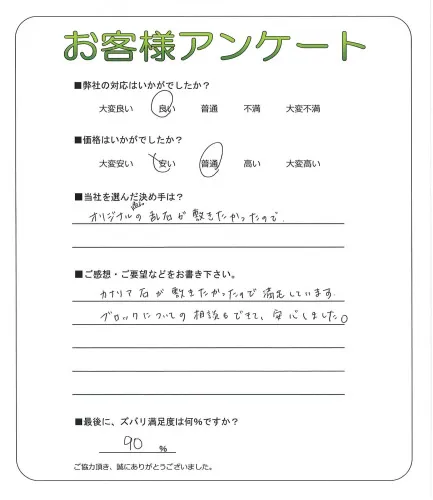 お客様アンケート
■弊社の対応はいかがでしたか?
大変良い 良い 普通 不満 大変不満
■価格はいかがでしたか?
大変安い 安い 普通 高い 大変高い
■当社を選んだ決め手は?
オリジナルの乱石が敷きたかったので.
■ご感想・ご要望などをお書き下さい。
カナリア石が敷きたかったので満足しています.
ブロックについての相談もできて、安心しました。
■最後に、ズバリ満足度は何%ですか?
90 %
ご協力頂き、誠にありがとうございました。